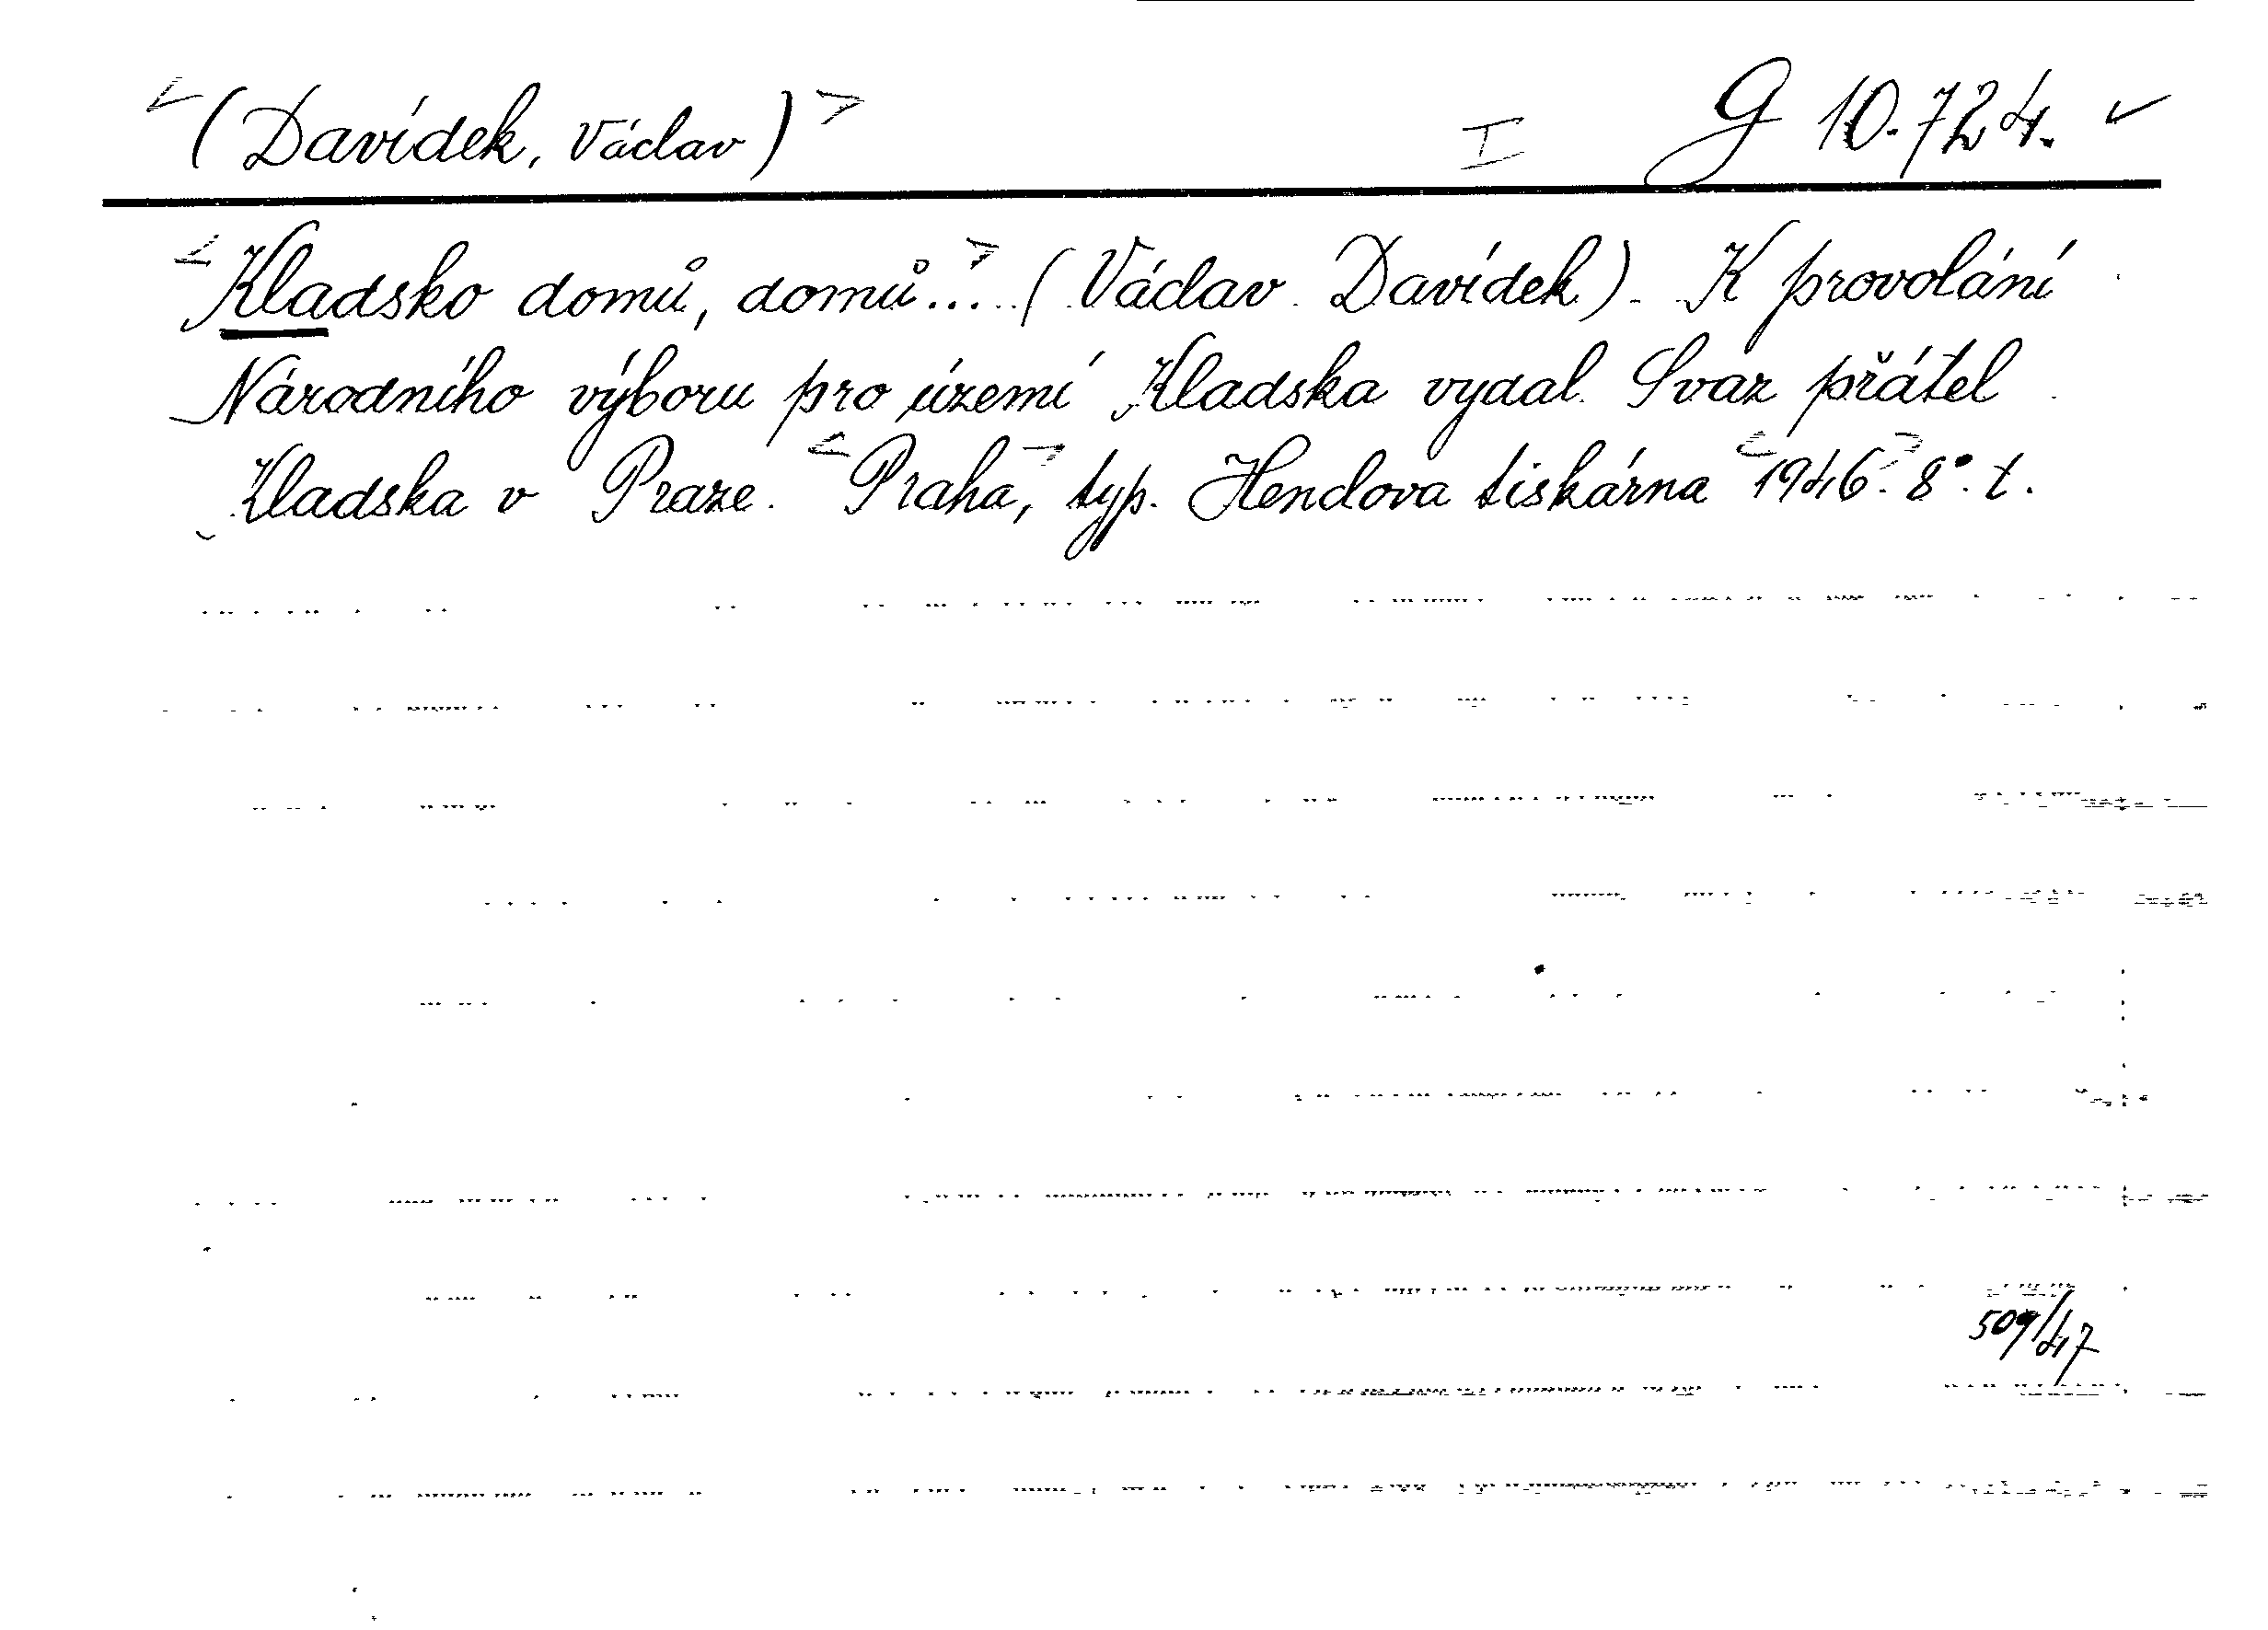 <(Davídek, Václav)> I G 10.724. ✓
<Kladsko domů, domů...>..(Václav Davídek). K provolání
Národního výboru pro území Kladska vydal Svaz přátel
Kladska v Praze. <Praha>, typ. Hendova tiskárna <1946>. 8°. t.
509/47